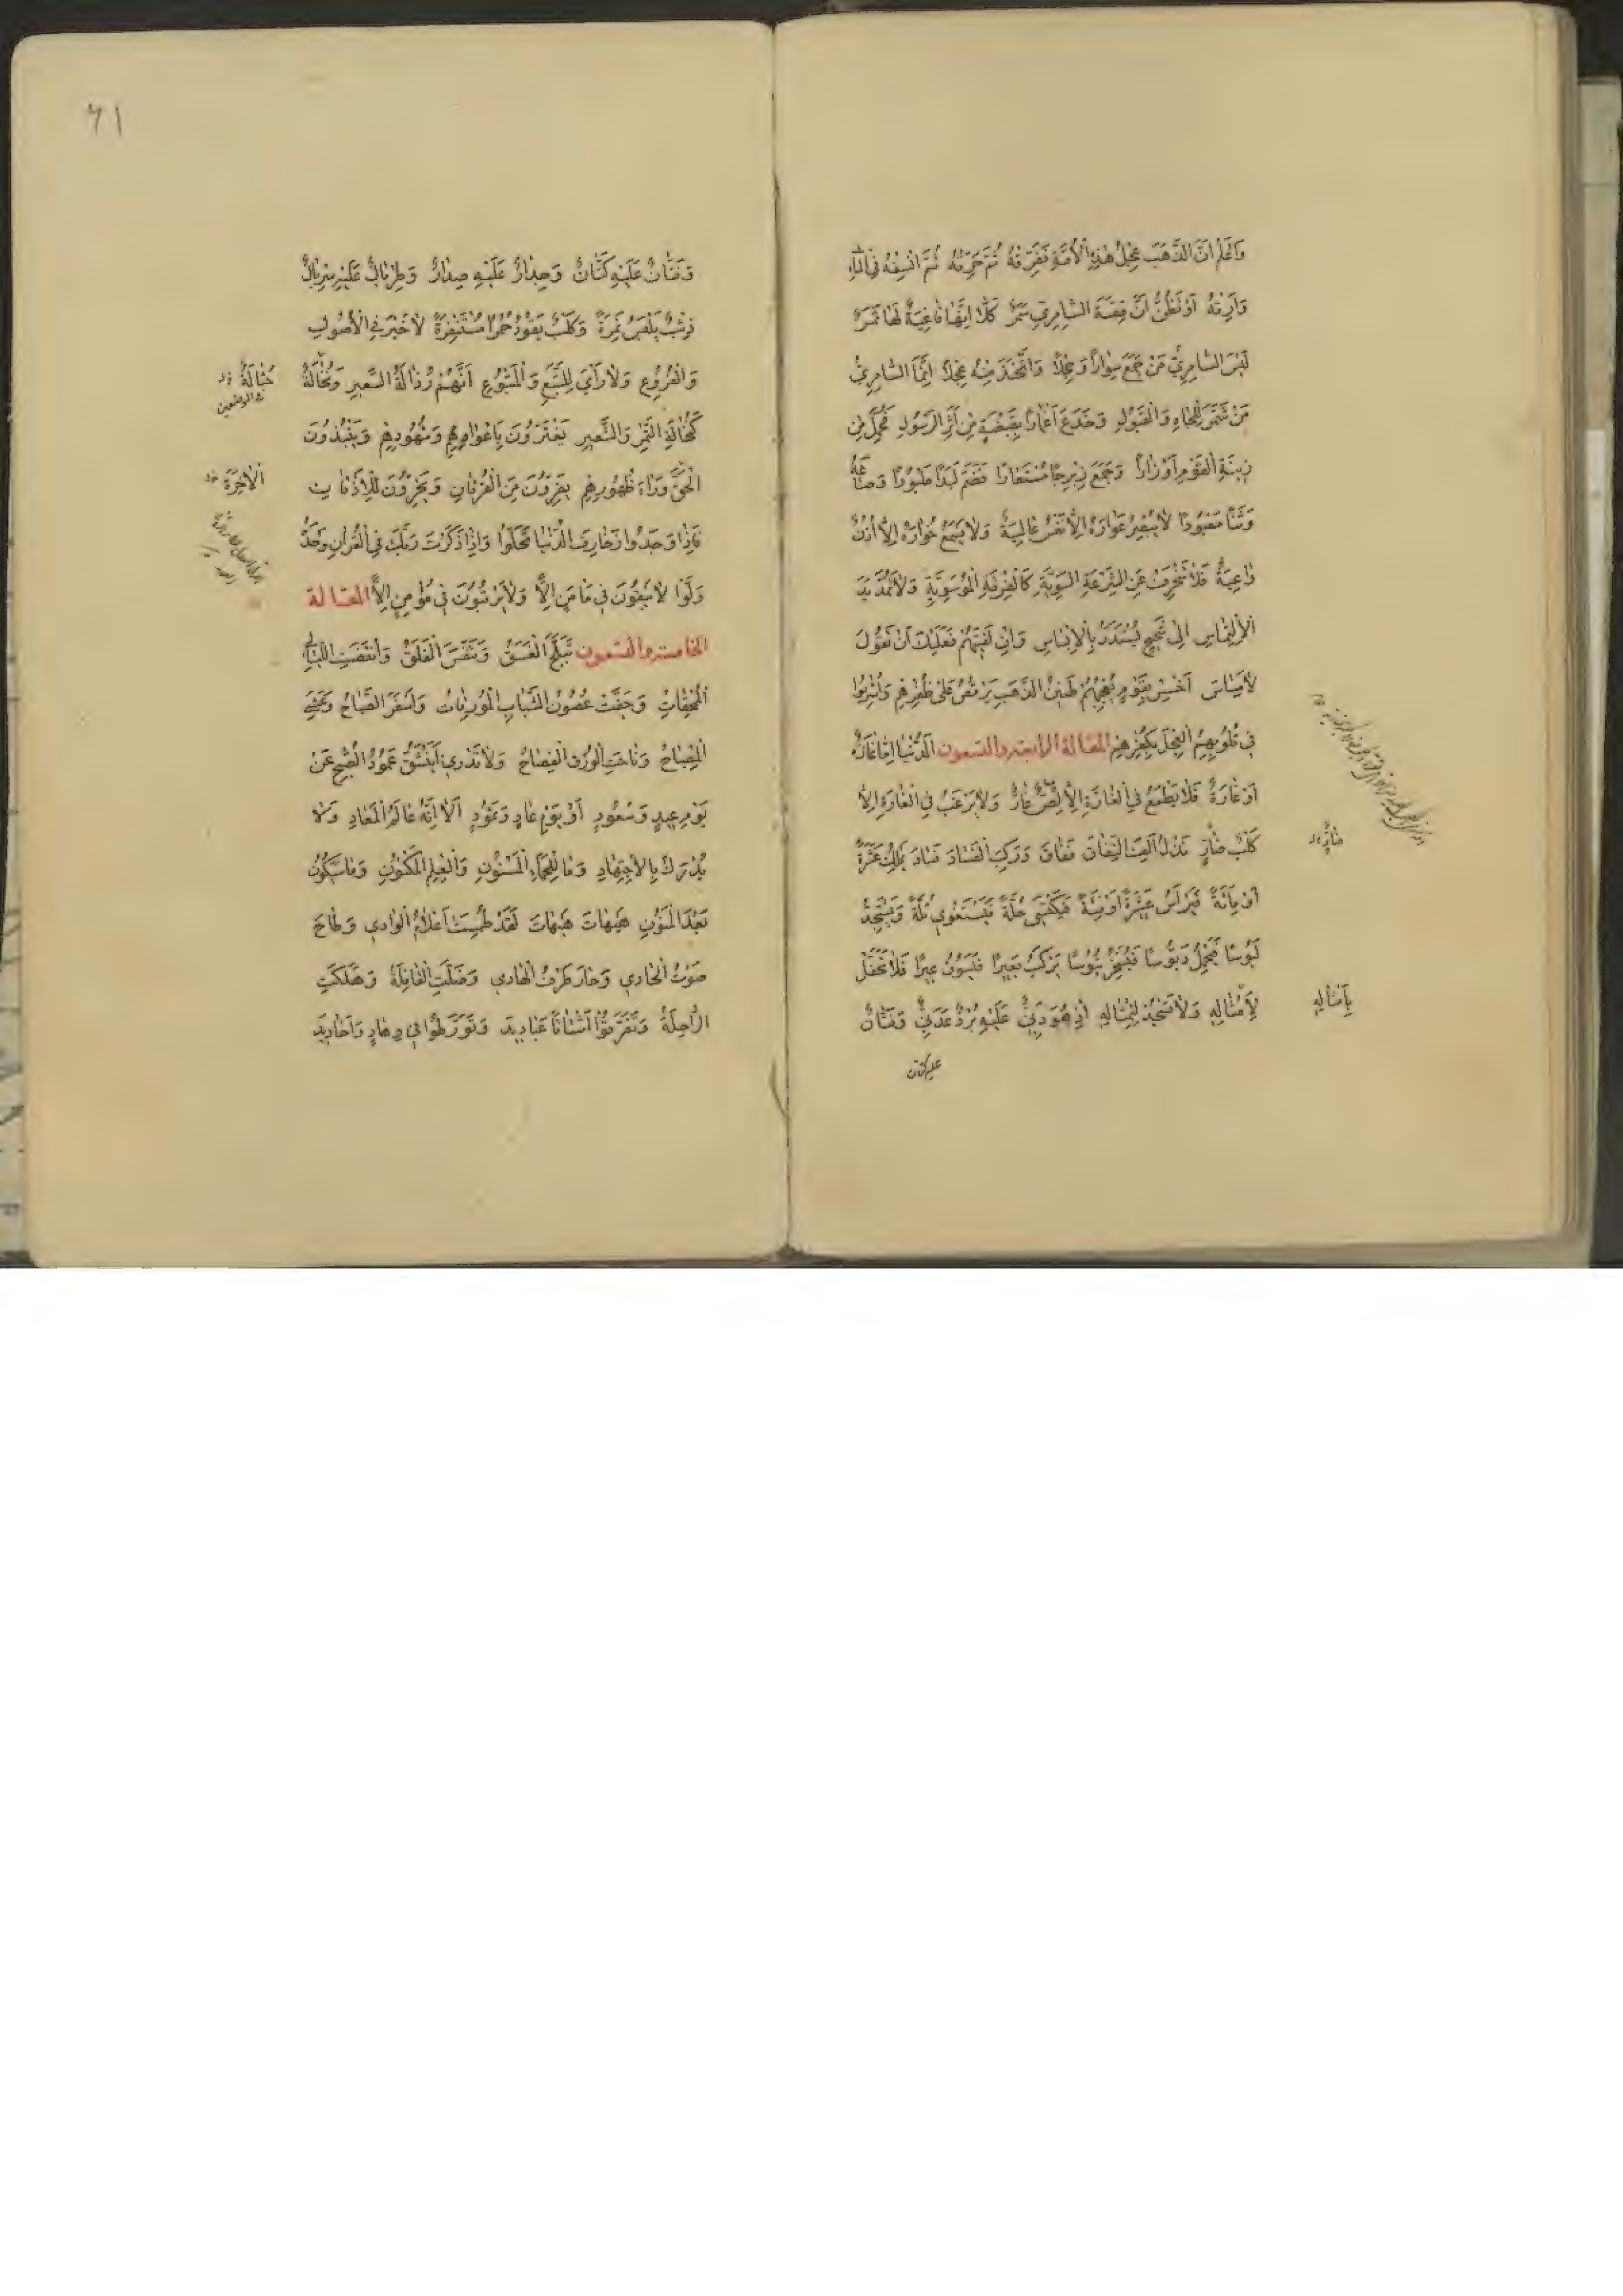 وَاعْلَمْ اَنَّ الذَّهَبَ عِجْلُ هٰذِهِ الْاُمَّةِ فَفَرِّقْهُ ثُمَّ حَرِّقْهُ ثُمَّ انْسِفْهُ فِي الْمَاءِ
اَوْ تَظُنُّ اَنَّ قِصَّةَ السَّامِرِيِّ سَمَرٌ كَلَّا اِنَّهَا فَاغِيَةٌ لَهَا ثَمَرٌ
لَيْسَ السَّامِرِيُّ مَنْ جَمَعَ سِوَارًا وَحِجْلًا وَاتَّخَذَ مِنْهُ عِجْلًا اِنَّمَا السَّامِرِيُّ
مَنْ شَمَّرَ لِلْجَاهِ وَالْقَبُولِ وَخَدَعَ اَغْمَارًا بِقَبْضَةٍ مِنْ اَثَرِ الرَّسُولِ فَحُمِّلَ مِنْ
زِينَةِ الْقَوْمِ اَوْزَارًا وَجَمَعَ زِبْرِجًا مُسْتَعَارًا فَضَمَّ لَبَدًا مَلْبُودًا وَصَاغَهُ
وَثَنًا مَعْبُودًا لَا يُبْصِرُ عَوَارَهُ اِلَّا نَفْسٌ عَالِيَةٌ وَلَا يَسْمَعُ خُوَارَهُ اِلَّا اُذُنٌ
وَاعِيَةٌ فَلَا تَنْحَرِفْ عَنِ الشِّرْعَةِ السَّوِيَّةِ كَالْفِرْقَةِ الْمُوسَوِيَّةِ وَلَا تَمُدَّ يَدَ
الْاِلْتِمَاسِ اِلَى شَحِيحٍ وَاِنْ لَقِيتَهُمْ فَعَلَيْكَ اَنْ تَقُولَ
لَا مِسَاسَ اَخْسِسْ بِقَوْمٍ طَنِينُ الذَّهَبِ يَرْقُصُ عَلٰى ظُفْرِهِمْ وَاُشْرِبُوا
فِي قُلُوبِهِمُ الْعِجْلَ بِكُفْرِهِمْ المقالة الرابعة والتسعون الدُّنْيَا اِمَّا عَارٌ
اَوْ غَارَةٌ فَلَا يَطْمَعُ فِي الْعَارَةِ اِلَّا لِصٌّ عَارٌ وَلَا يَرْغَبُ فِي الْغَارَةِ اِلَّا
كَلْبٌ ضَارٍ نَذْلٌ اَلِفَ النِّفَاقَ فَفَاقَ وَرَكِبَ الْفَسَادَ فَسَادَ يَمْلِكُ عَشَرَةً
اَوْ مِائَةً فَيَرْأَسُ عَشَرَةً اَوْ فِئَةً يَكْتَسِي حُلَّةً فَيَسْتَغْوِي ثُلَّةً وَيَسْتَجِدُّ
لَبُوسًا فَيَحْمِلُ دَبُّوسًا بُوسًا يَرْكَبُ بَعِيرًا فَيَسُوقُ عِيرًا فَلَا تَحْفَلْ
لِاَمْثَالِهِ وَلَا تَسْجُدْ لِتِمْثَالِهِ اِذْ هُوَ دَنِيٌّ عَلَيْهِ بُرْدٌ عَدَنِيٌّ وَفَتَّانٌ
عليه كتان
ضارٍ
بِاَمْثَالِهِ
٦١
وَفَتَّانٌ عَلَيْهِ كَتَّانٌ وَجِدَارٌ عَلَيْهِ صِدَارٌ وَطِرْبَالٌ عَلَيْهِ سِرْبَالٌ
ذِئْبٌ يَلْبَسُ نَمِرَةً وَكَلْبٌ يَقُودُ حُمُرًا مُسْتَنْفِرَةً لَا خَيْرَ فِي الْاُصُولِ
وَالْفُرُوعِ وَلَا رَأْيَ لِلتَّبَعِ وَالْمَتْبُوعِ اَنَّهُمْ رُذَالَةُ السَّعِيرِ وَنُخَالَةٌ
كَنُخَالَةِ التَّمْرِ وَالشَّعِيرِ يَغْتَرُّونَ بِاَعْوَامِهِمْ وَشُهُورِهِمْ وَيَنْبُذُونَ
الْحَقَّ وَرَاءَ ظُهُورِهِمْ يَفِرُّونَ مِنَ الْقُرْآنِ وَيَخِرُّونَ لِلْاَذْقَانِ
فَاِذَا وَجَدُوا زَخَارِفَ الدُّنْيَا تَحَلَّوْا وَاِذَا ذَكَرْتَ رَبَّكَ فِي الْقُرْاٰنِ وَحْدَهُ
وَلَّوْا لَا يَتَّقُونَ فِي مَأْمَنٍ اِلًّا وَلَا يَرْقُبُونَ فِي مُؤْمِنٍ اِلًّا المقالة
الخامسة والتسعون تَبَلَّجَ الْغَسَقُ وَتَنَفَّسَ الْفَلَقُ وَانْقَضَتِ اللَّيَالِي
وَجَفَّتْ غُصُونُ الشَّبَابِ الْمُورِقَاتُ وَاَسْفَرَ الصَّبَاحُ وَعَشِيَ
الْمِصْبَاحُ وَنَاحَتِ الْوُرْقُ الْفِصَاحُ وَلَا تَدْرِي اَيَنْشَقُّ عَمُودُ الصُّبْحِ عَنْ
يَوْمِ عِيدٍ وَسُعُودٍ اَوْ يَوْمِ عَادٍ وَثَمُودٍ اَلَا اِنَّهُ عَالَمُ الْمَعَادِ وَلَا
يُدْرَكُ بِالْاِجْتِهَادِ وَمَا لِلْحَمَاءِ الْمَسْنُونِ وَالْعِلْمِ الْمَكْنُونِ وَمَا سَيَكُونُ
بَعْدَ الْمَنُونِ هَيْهَاتَ هَيْهَاتَ لَقَدْ طُمِسَتْ اَعْلَامُ الْوَادِي وَطَاحَ
صَوْتُ الْحَادِي وَحَارَ طَرْفُ الْهَادِي وَضَلَّتِ الْقَافِلَةُ وَهَلَكَتِ
الرَّاحِلَةُ وَتَفَرَّقُوا اَشْتَاتًا عَبَادِيدَ وَتَوَرَّطُوا فِي وِهَادٍ وَاَخَادِيدَ
حُثَالَةُ
الْاٰخِرَةِ